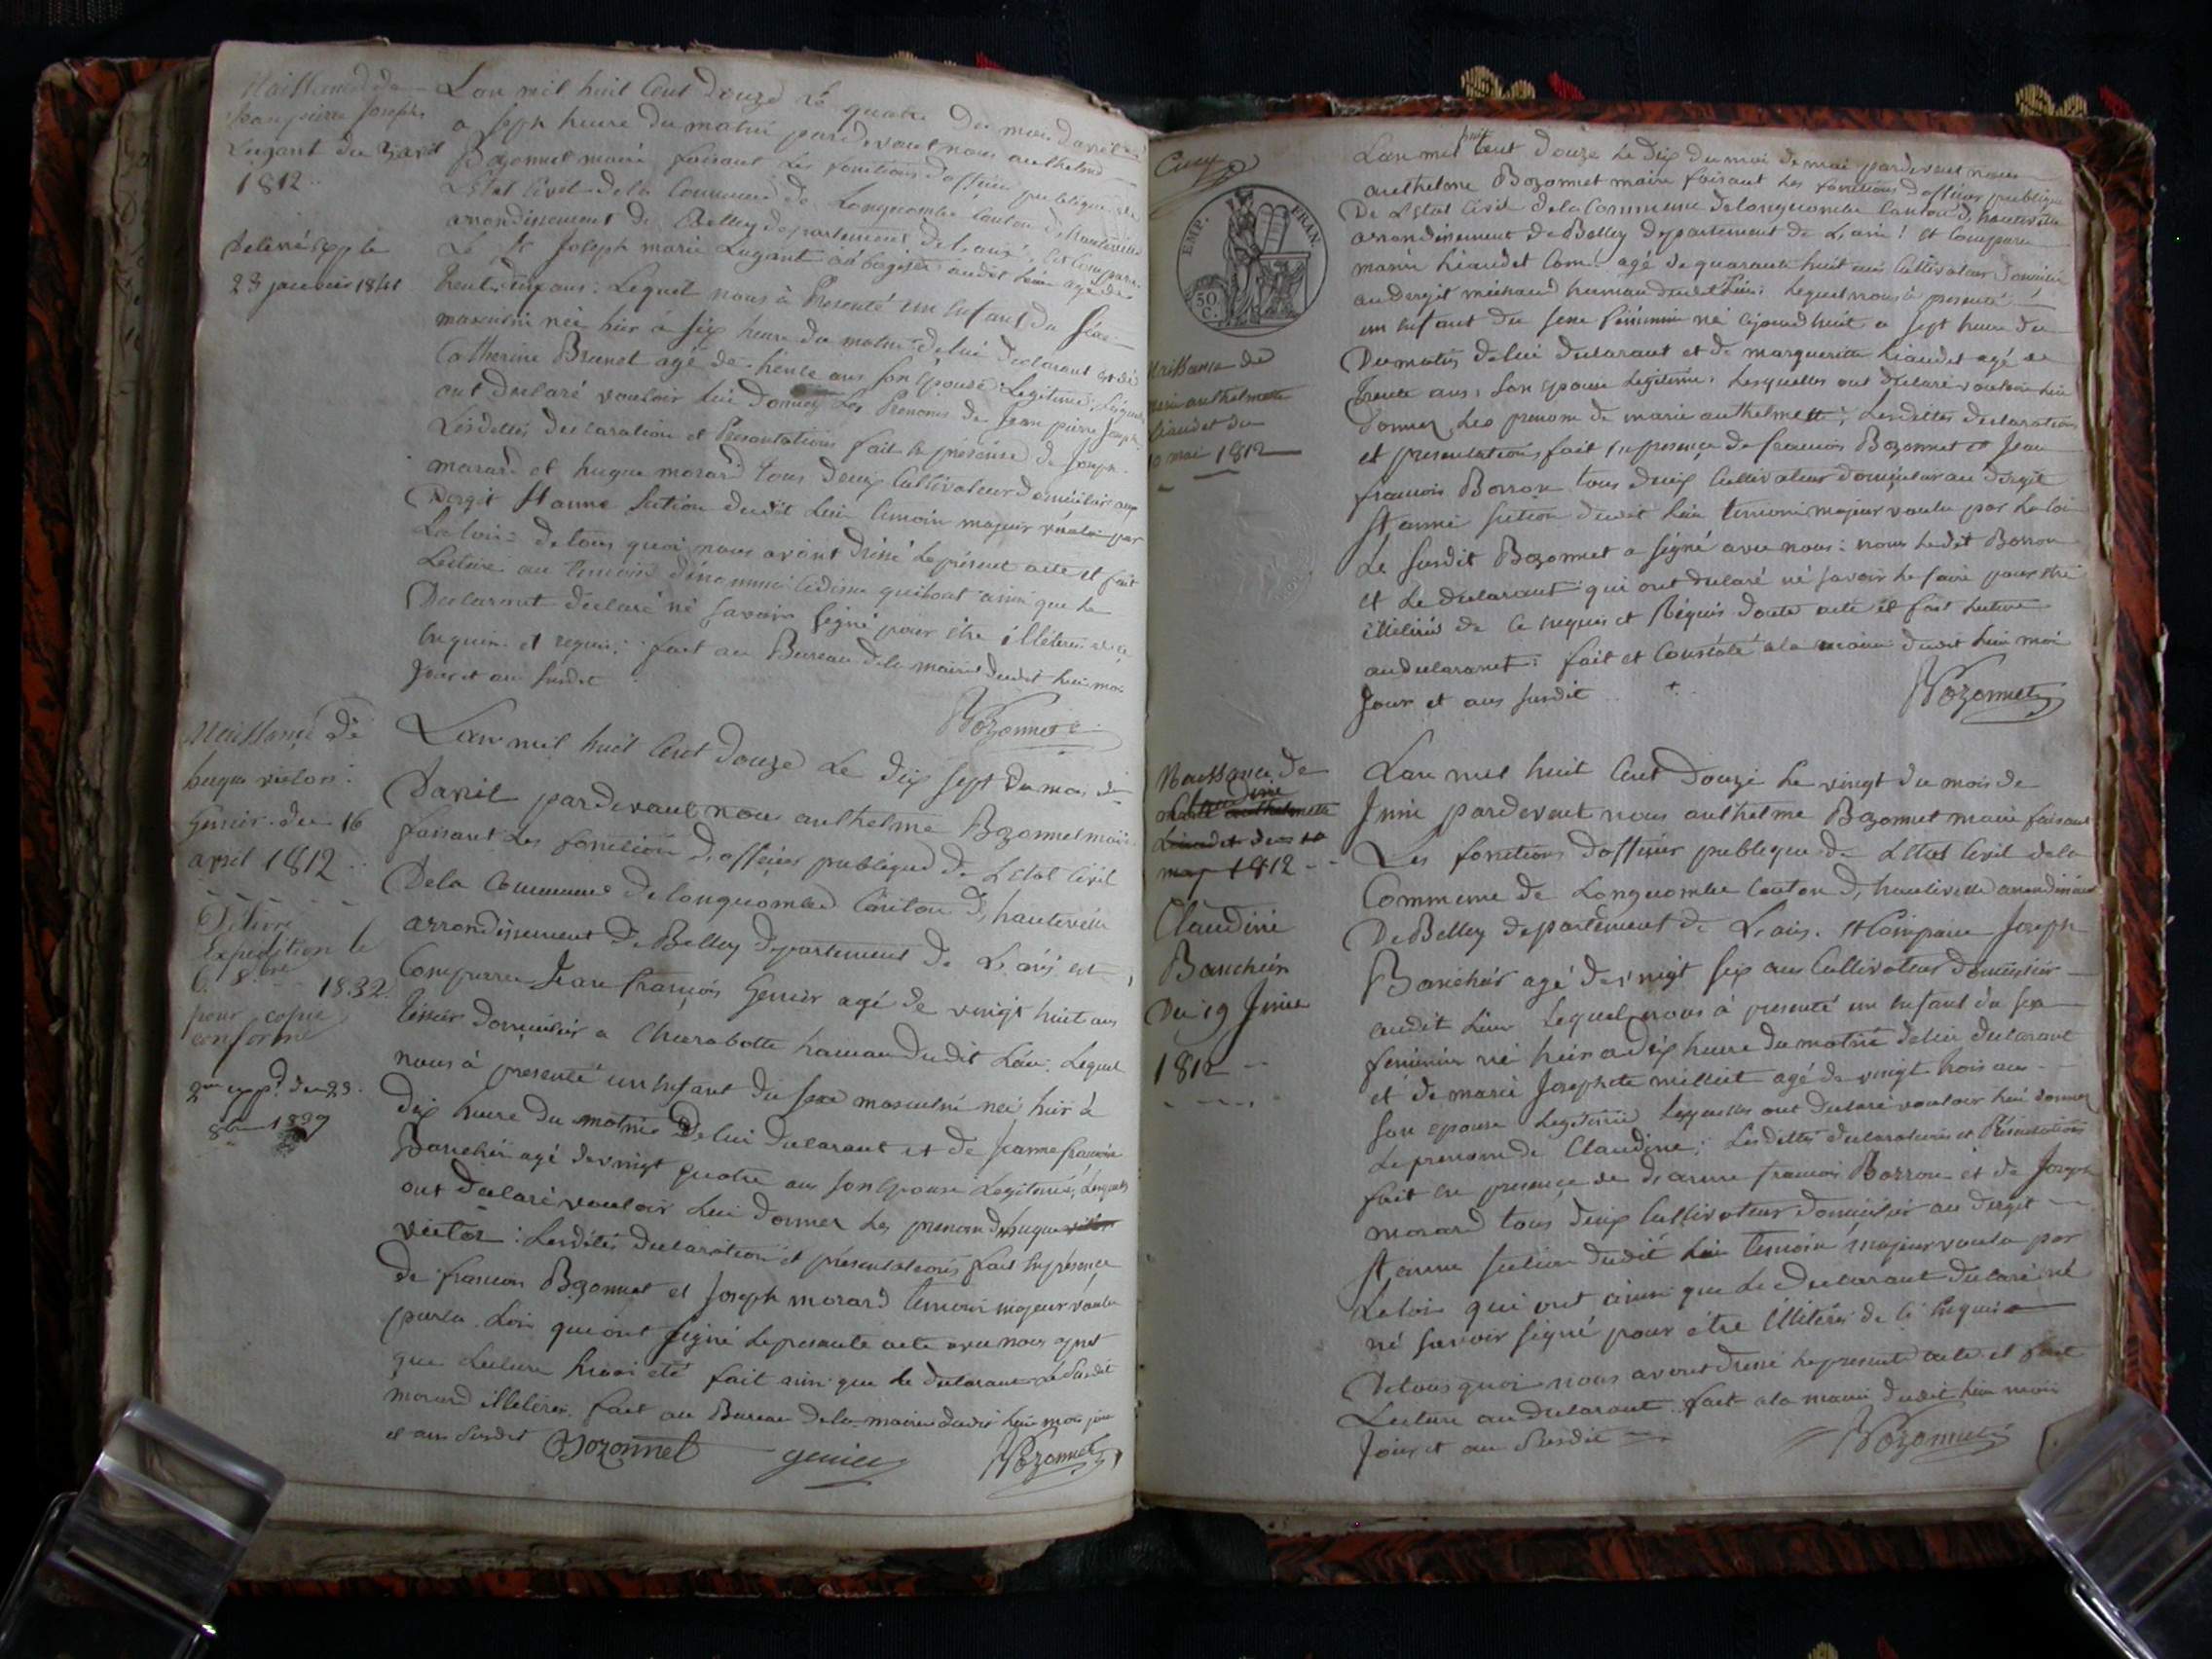 Naissance de
Jean pierre Joseph
Lugant du 3 avril
1812
Delivré exp le
23 janvier 1841
Lan mil huit Cent douze Le quatre du moi davril
a sept heure du matin pardevant nous anthelme
Bozonnet maire faisant Les fonctions dofficier publique de
Letat Civil de la Commune de Longecombe Canton de hauteville
arrondissement de Belley departement de Lain, est Comparu
Le Sr Joseph marie Lugant audit Lieu agé de
ans: Lequel nous à Presenté un enfant du
masculin née hier à six heure du matin de lui declarant et de
Catherine Brunet agé de trente ans son Epouse Legitime; Lesquels
ont declaré vouloir lui donner Les Prenoms de Jean pierre Joseph
Lesdittes declaration et Presentations fait en présence de Joseph
morard et hugue morard tous deux Cultivateur domicilier aux
Dergit St anne section dudit Lieu temoin majeur voulu par
La loi: de tous quoi nous avont dressé Le présent acte et fait
Lecture au temoins dénommé quil ont ainsi que Le
Declarant declaré né savoir signé pour être illéteré de ce
enquis et requis; fait au Bureau de la mairie dudit Lieu moi
Jour et an susdit
Bozonnet
Naissance de
hugue victor
Genier du 16
avril 1812
Délivré
Expedition le
6. 8.bre 1832.
pour copie
conforme
2me exp.d du 23.
8bre 1839
Lan mil huit Cent douze Le dix sept du moi de
Davril pardevant nous anthelme Bozonnet maire
faisant Les fonction dofficier publique de Letat Civil
De la Commune de longecombe Canton D, hauteville
arrondissement de Belley departement de Lain est
Comparru Jean françois Genier agé de vingt huit ans
domicilier a Charabotte hameau dudit Lieu: Lequel
nous à presenté un enfant du sexe masculin née hier à
Dix heure du matin De lui declarant et de Jeanne francoise
Banchin agé de vingt quatre ans son Epouse Legitime; Lesquels
ont declaré vouloir Lui donner Les prenom de hugue victor
victor: Lesdites declaration et présentations fait en présence
de francois Bozonnet et Joseph morard temoin majeur voulu
par La Loi qui ont signé Le presente acte avec nous apret
que Lecture ete fait ainsi que Le declarant Le Susdit
morard illeteré. fait au Bureau de la mairie dudit Lieu moi jour
et an susdit Bozonnet genier Bozonnet
EMP. FRAN.
50 C.
Naissance de
marie anthelmette
Liaudet du
10 mai 1812
Lan mil huit Cent Douze Le Dix du moi de mai pardevent nous
anthelme Bozonnet maire faisant Les fonctions dofficier publique
De Letat Civil de la Commune de longecombe Canton D, hauteville
arrondissement de Belley departement de Lain! et Comparu
marin Liaudet agé de quarante huit ans Cultivateur domicilier
au dergit michaud hameau dudit Lieu: Lequel nous à presenté
un enfant du sexe féminin né ajourdhuit a sept heure du
Dumatin de lui declarant et de marguerite Liaudet agé de
Trente ans, son epouse Legitime, Lesquelles ont declaré vouloir lui
donner Les prenom de marie anthelmette; Lesdittes declarations
et presentations fait en presence de francois Bozonnet et Jean
francois Borron tous deux Cultivateur domicilier au dergit
St anne section dudit Lieu temoin majeur voulu par La loi
Le susdit Bozonnet a signé avec nous: nous Le dit Borron
et Le declarant qui ont declaré né savoir Le faire pour etre
illeteré de Ce enquis et Réquis doute acte et fait Lecture
au declarant: fait et Constaté a la mairie dudit Lieu moi
Jour et ans susdit
Bozonnet
Naissance de
Claudine
may 1812
Claudine
Banchin
Du 19 Juin
1812
Lan mil huit Cent Douze Le vingt du mois de
Juin pardevent nous anthelme Bozonnet maire faisant
Les fonctions dofficier publique de Letat Civil de la
Commune de Longecombe Canton D, hauteville arrondissement
De Belley departement de Lain. et Comparu Joseph
Banchin agé de vingt six ans Cultivateur domicilier
audit Lieu Lequel nous à presenté un enfant du sexe
feminin né hier a dix heure du matin de lui declarant
et de marie Josephete millet agé de vingt trois ans
son epouse Legitime Lesquelles ont declaré vouloir Lui donner
Le prenom de Claudine; Lesdittes declarations et Présentations
fait en presence de Jeanne francois Borron et de Joseph
morard tous deux Cultivateur domicilier au dergit
St anne section dudit Lieu temoin majeur voulu par
La loi qui ont ainsi que Le declarant declaré né
né savoir signé pour être illéteré de Ce enquis
De tous quoi nous avont dressé Le presente acte et fait
Lecture au declarant. fait a la mairie dudit Lieu mois
Jour et an Susdit
Bozonnet